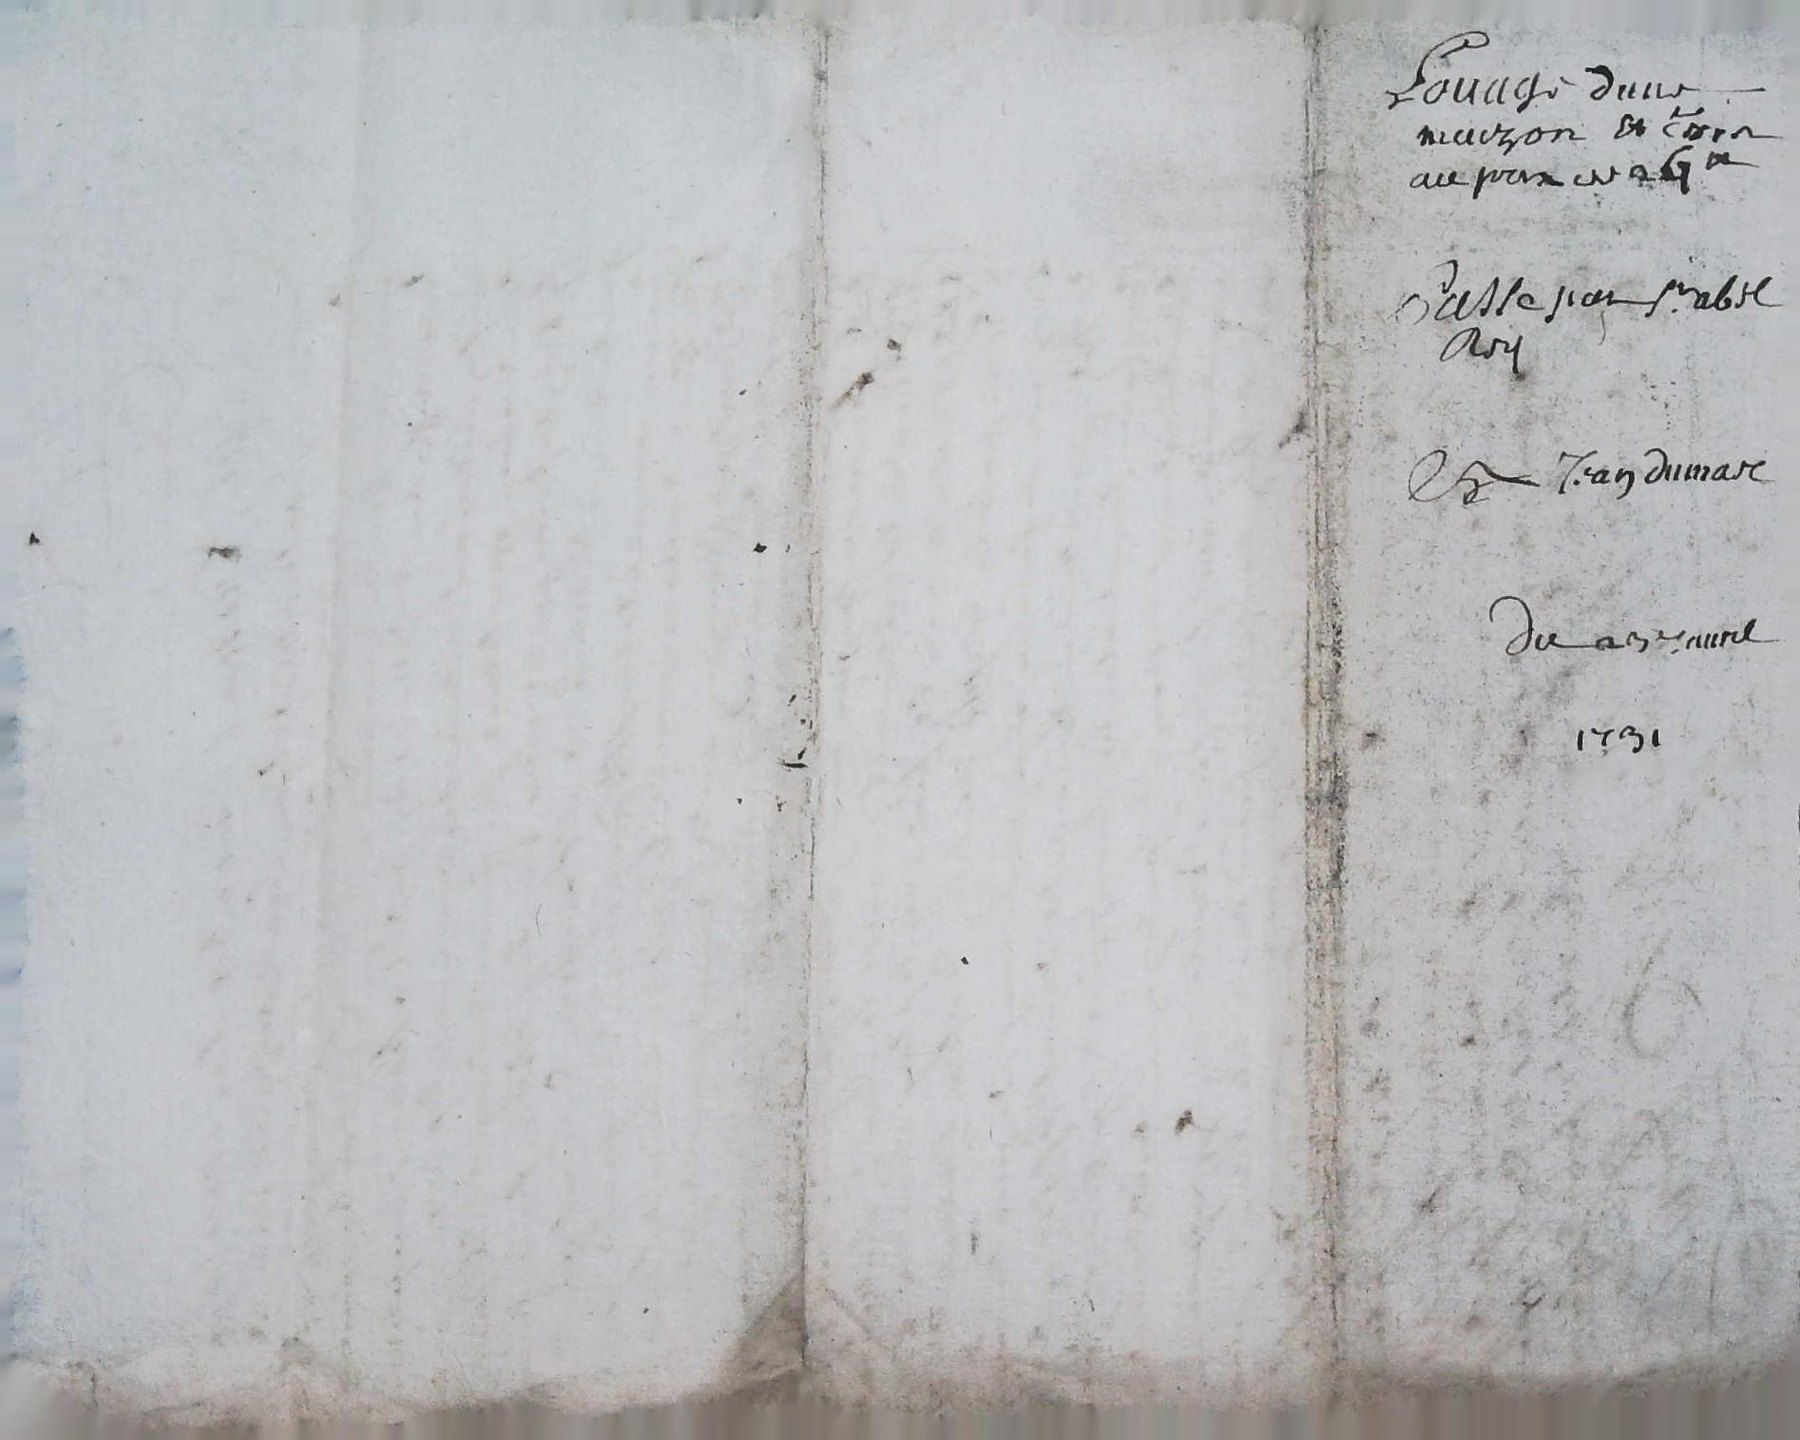 Louage dune
maizon et terre
au prix de 26
Passe par sr. abel
Roy
Et Jean dumas
Du avril
1731